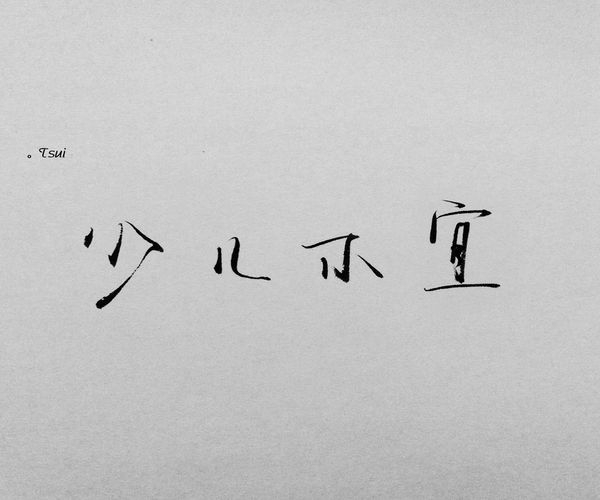 。Tsui
少儿不宜